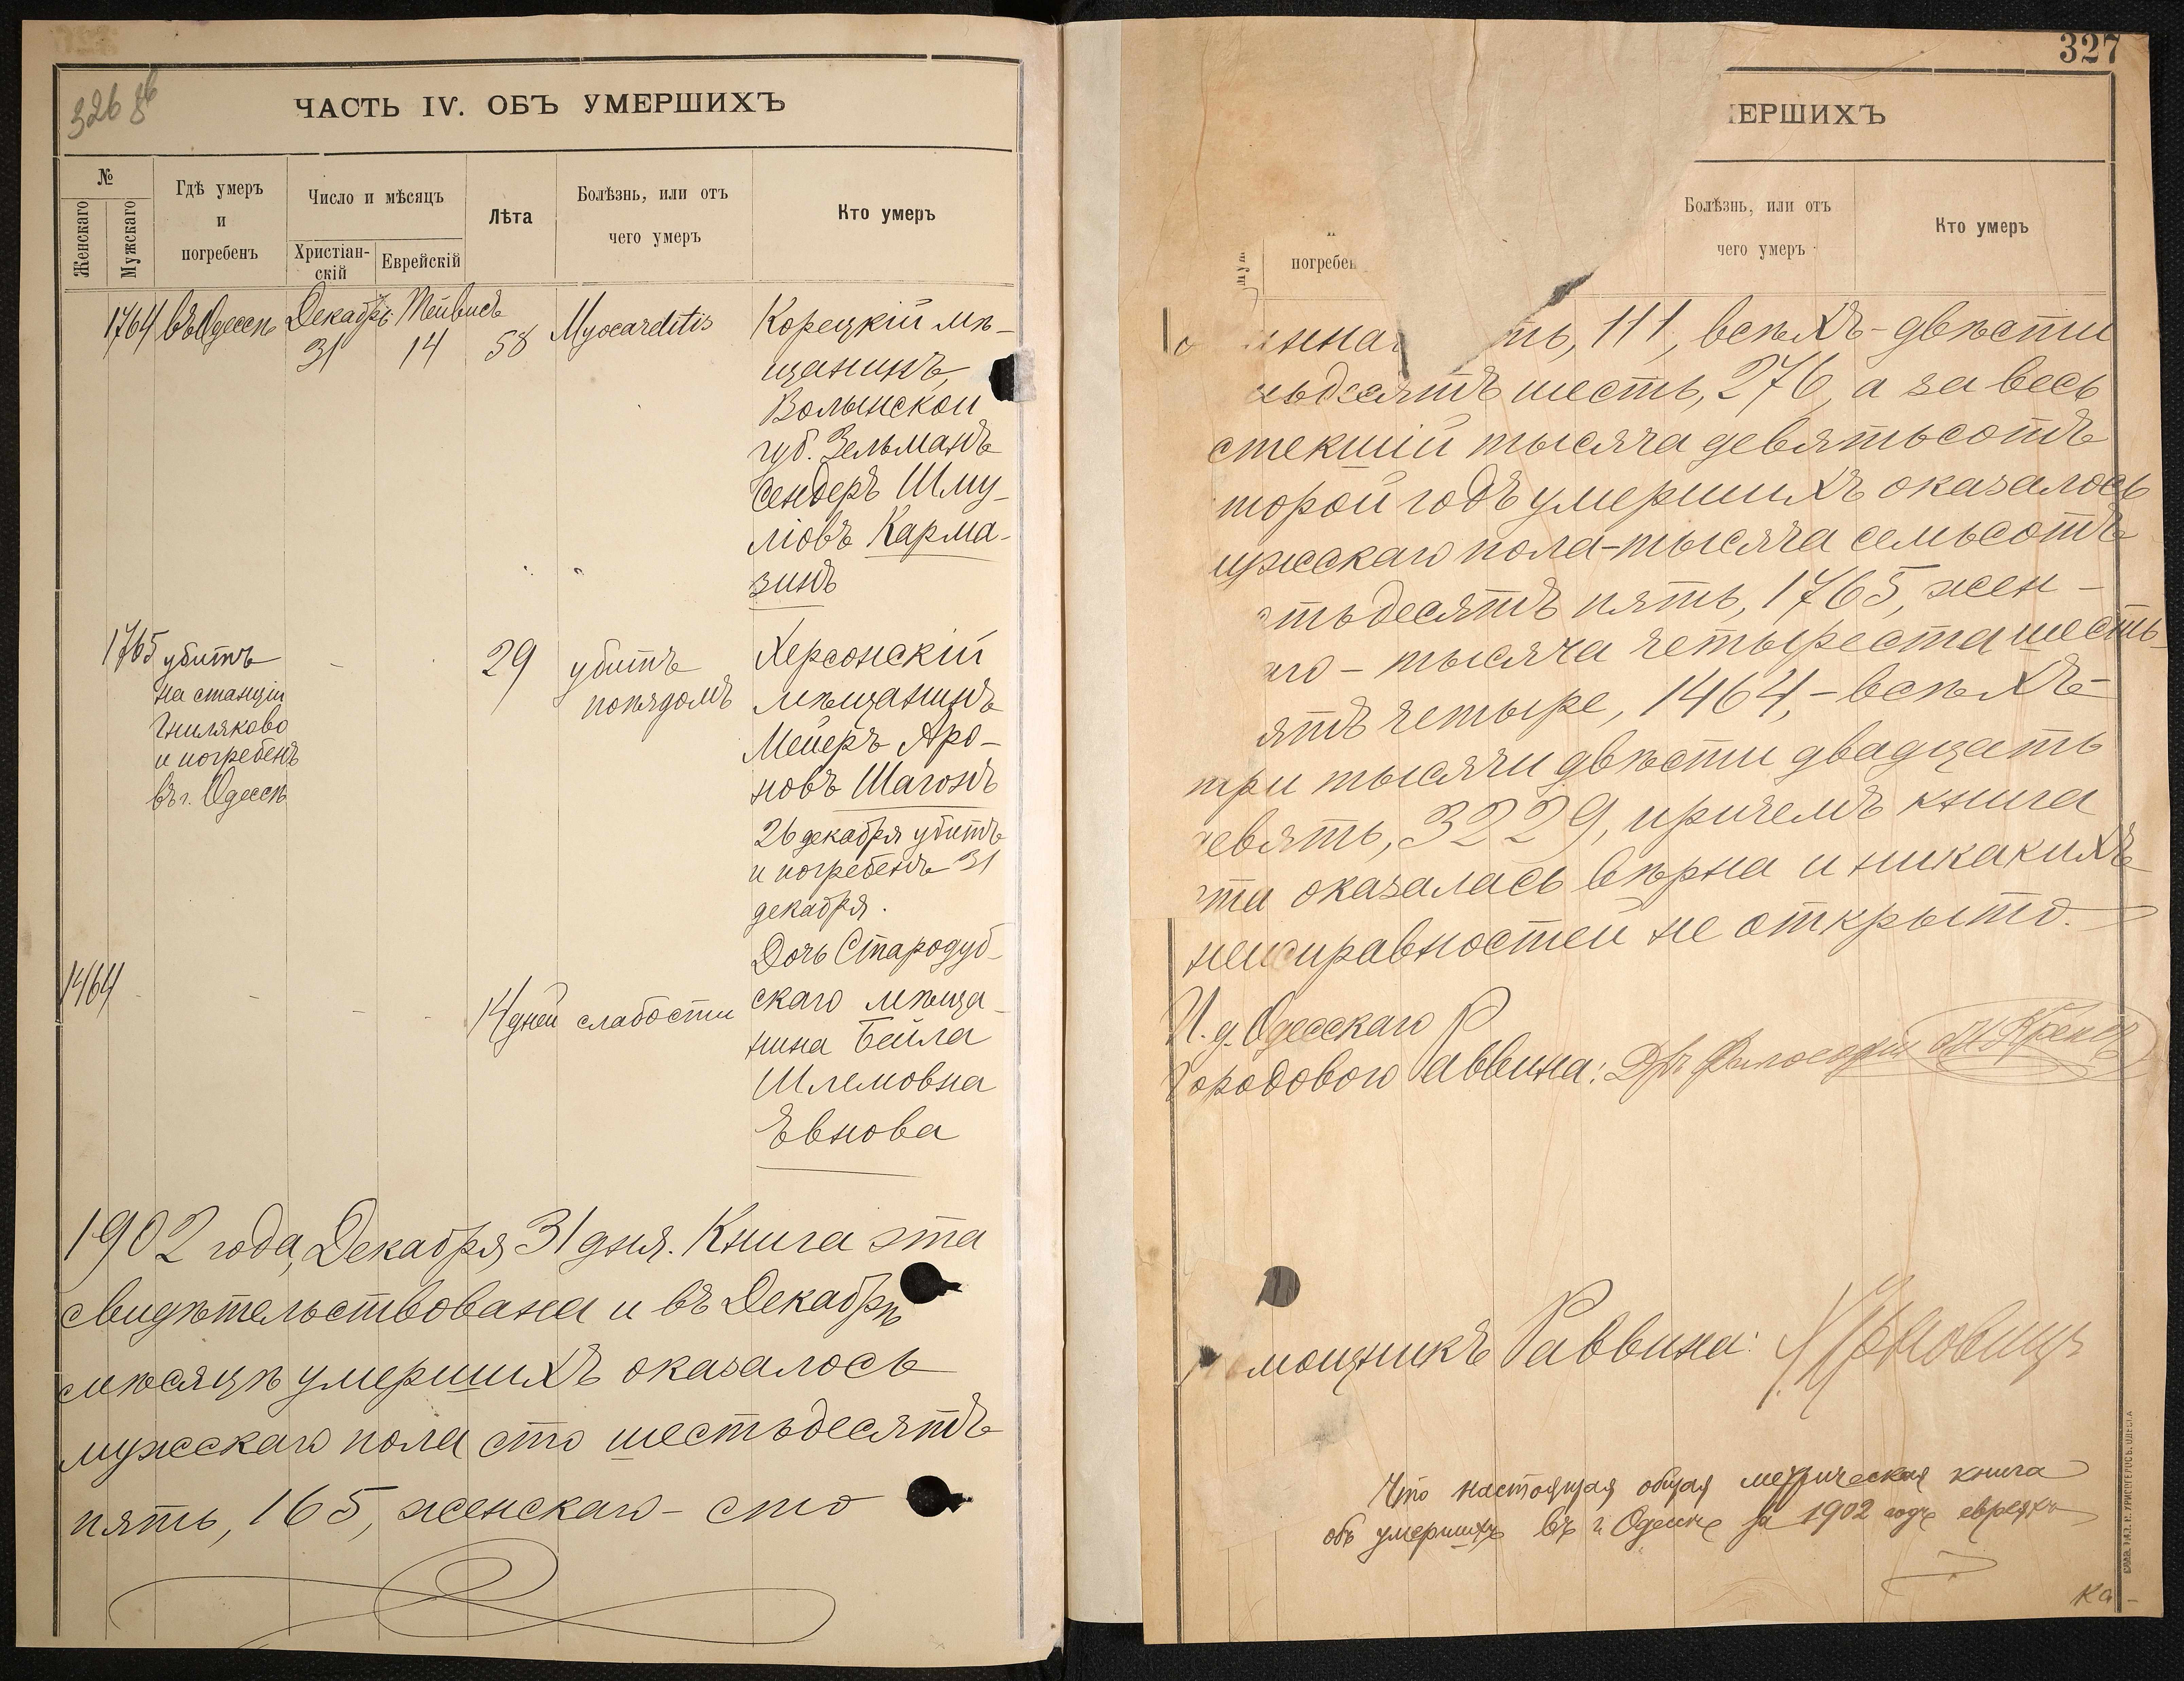 326 об
ЧАСТЬ IV. ОБЪ УМЕРШИХЪ
№
Женскаго
Мужскаго
Гдѣ умеръ
и
погребенъ
Число и мѣсяцъ
Христіан-
скій
Еврейскій
Лѣта
Болѣзнь, или отъ
чего умеръ
Кто умеръ
1764 въ Одессѣ Декабрь Тейвисъ
31 14 58 Myocarditis
Корецкій мѣ-
щанинъ,
Волынской
губ. Зельманъ
Сендеръ Шму-
ліовъ Карма-
зинъ
1765 убитъ
на станціи
Гниляково
и погребенъ
въ г. Одессѣ
29
убитъ
поѣздомъ
Херсонскій
мѣщанинъ
Мейеръ Аро-
новъ Шагонъ
26 декабря убитъ
и погребенъ 31
декабря.
1464
14 дней слабости
Дочь Стародуб-
скаго мѣща-
нина Бейла
Шлемовна
Евнова
1902 года, Декабря 31 дня. Книга эта
свидѣтельствована и въ Декабрѣ
мѣсяцѣ умершихъ оказалось
мужскаго пола сто шестьдесятъ
пять, 165, женскаго - сто
327
МЕРШИХЪ
погребен
Болѣзнь, или отъ
чего умеръ
Кто умеръ
ннад ть, 111, всѣхъ - двѣсти
ьдесятъ шесть, 276, а за весь
стекшій тысяча девятьсотъ
торой годъ умершихъ оказалось
ужскаго пола - тысяча семьсотъ
тьдесятъ пять, 1765, жен-
го - тысяча четыреста шесть-
ятъ четыре, 1464, - всѣхъ -
три тысячи двѣсти двадцать
евять, 3229, причемъ книга
эта оказалась вѣрна и никакихъ
неисправностей не открыто.
И. д. Одесскаго
Городового Раввина: Д-ръ Философіи
мощникъ Раввина:
Что настоящая общая метрическая книга
объ умершихъ въ г. Одессѣ за 1902 годъ евреяхъ
ка-